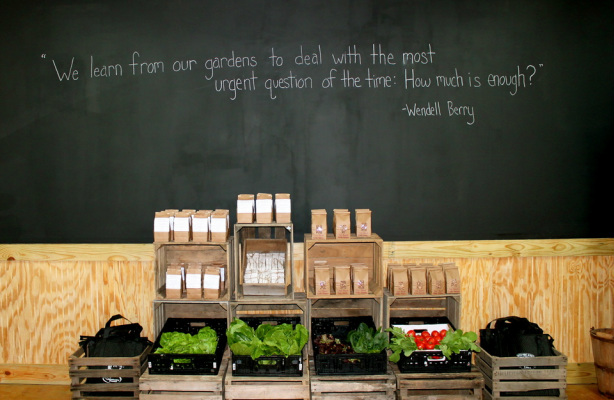 "We learn from our gardens to deal with the most
urgent question of the time: How much is enough?"
-Wendell Berry